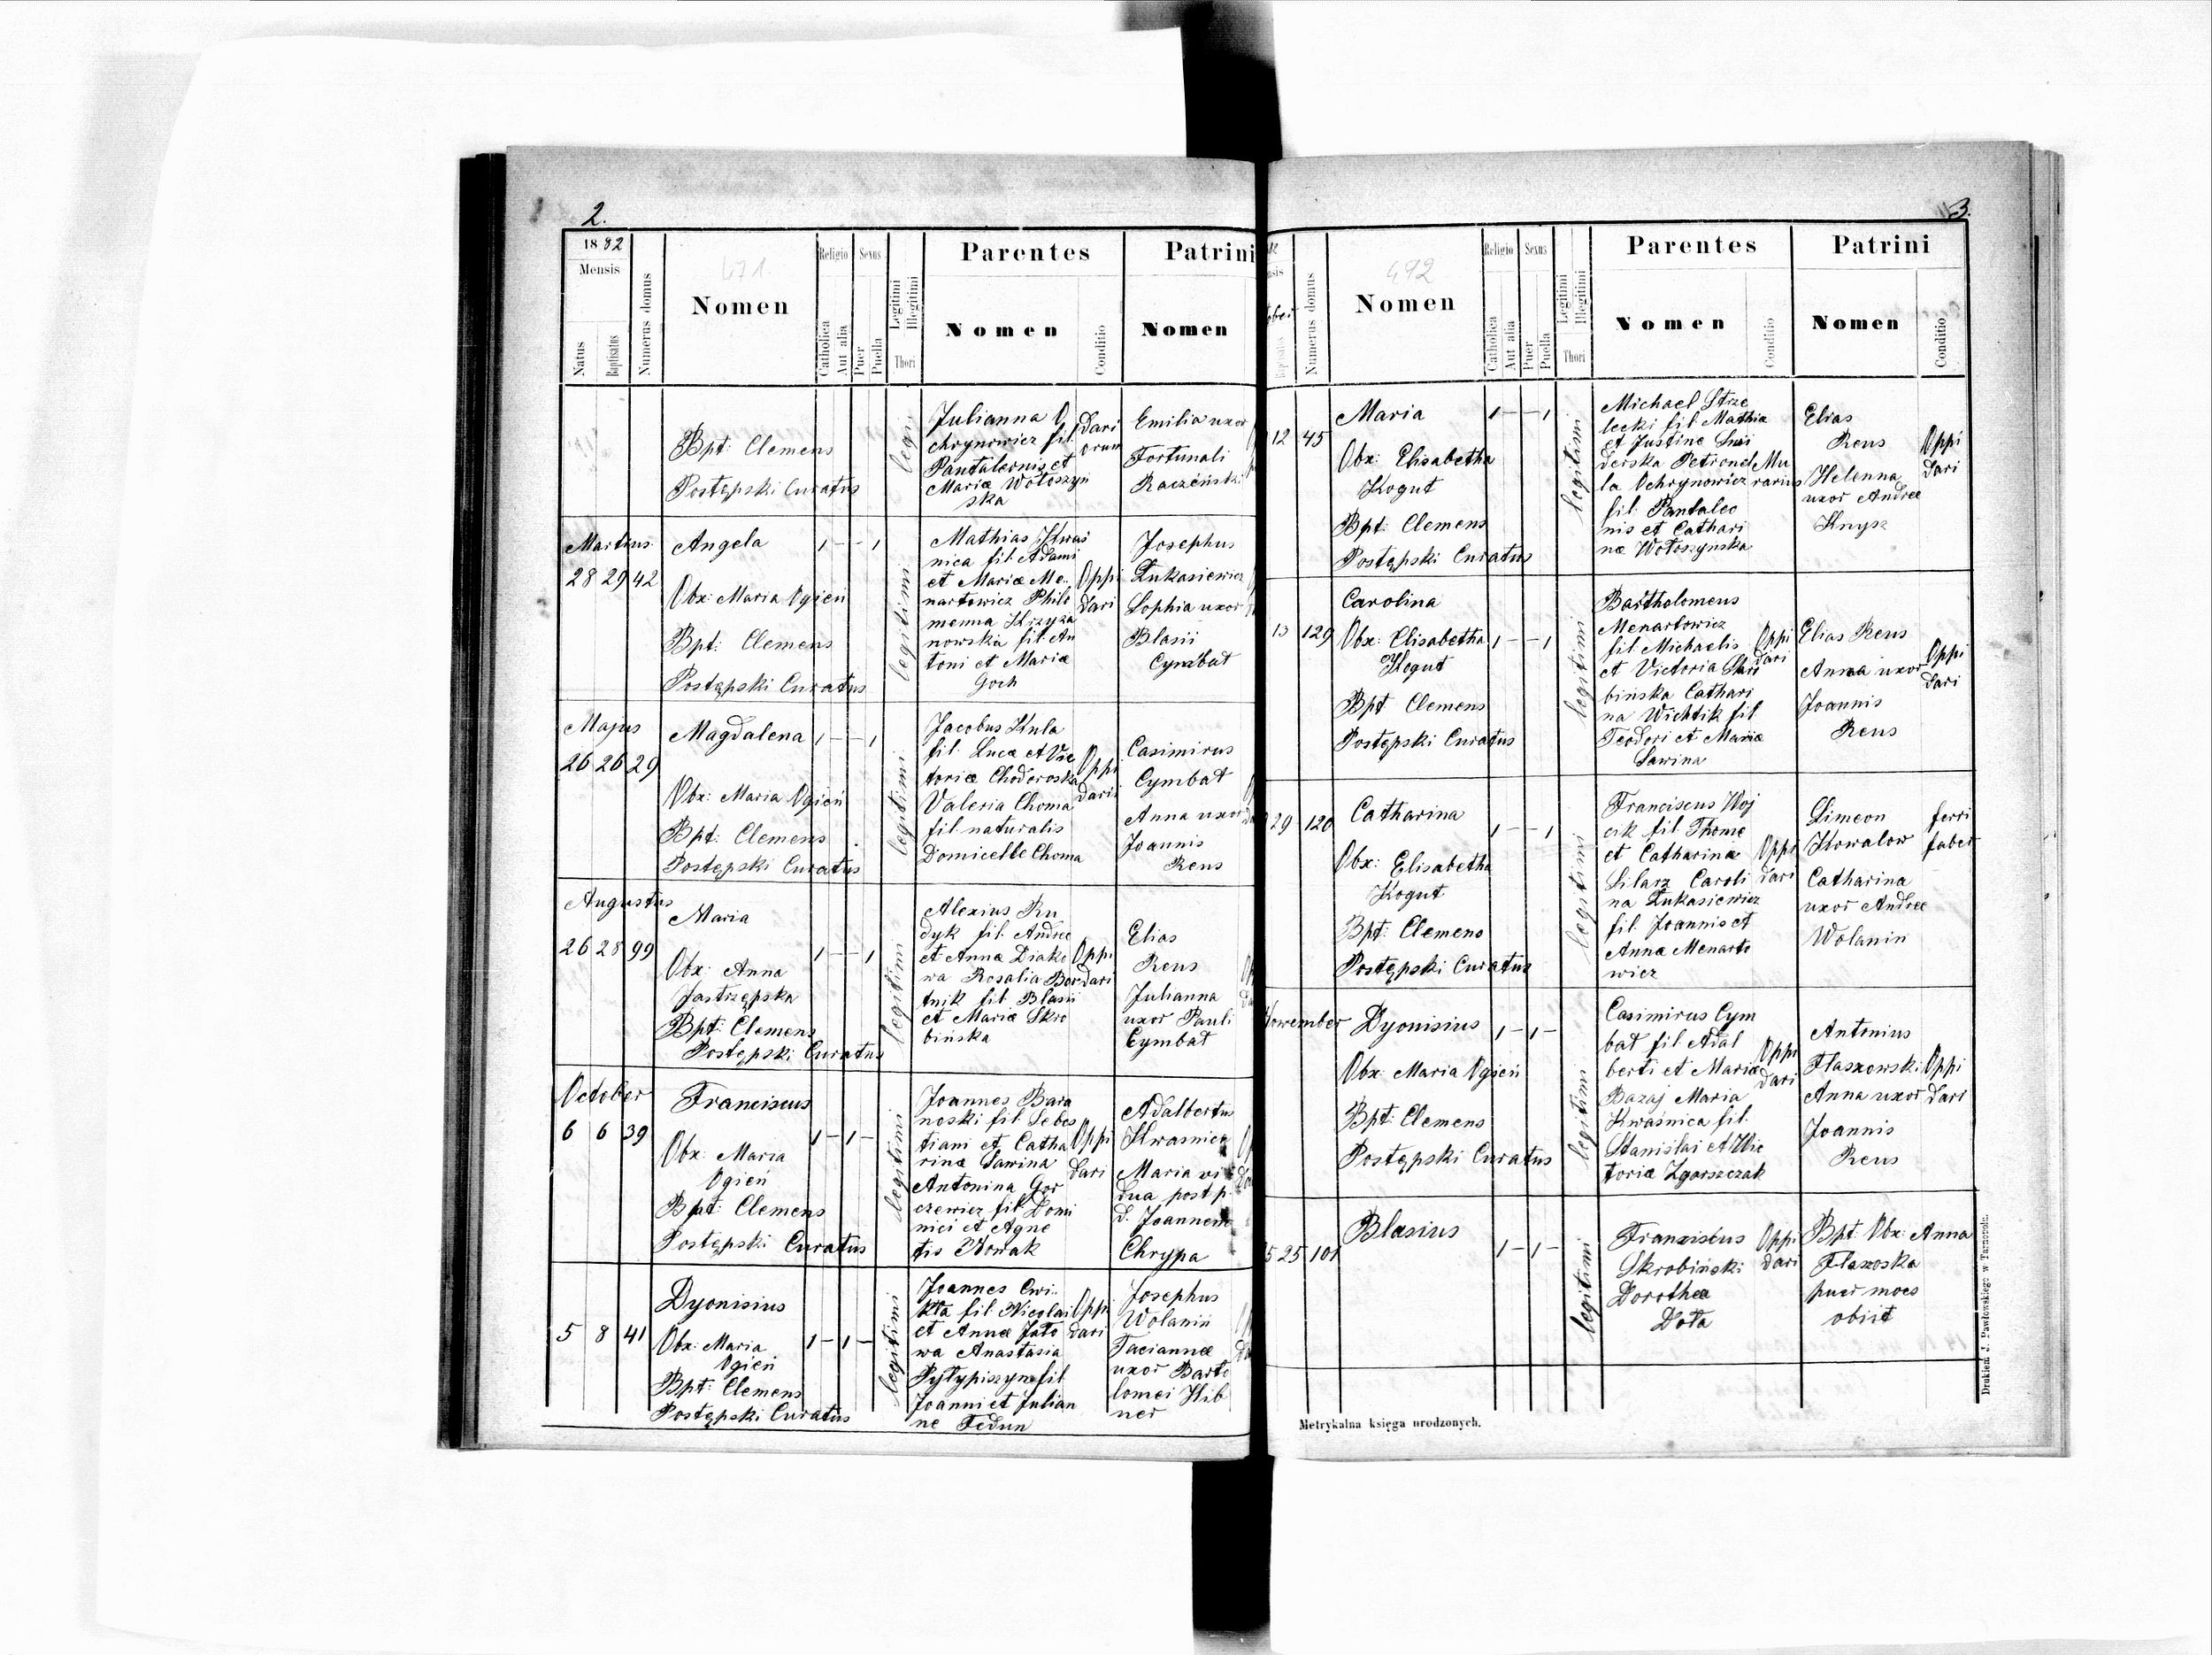 2.
1882
Mensis
Natus
Baptisatus
Numerus domus
471.
Nomen
Religio
Catholica
Aut alia
Sexus
Puer
Puella
Legitimi
Illegitimi
Thori
Parentes
Nomen
Conditio
Patrini
Nomen
Bpt: Clemens
Postępski Curatus
legi
Julianna O
chrynowicz fil
Pantaleonis et
Mariæ Wołoszyń
ska
dari
orum
Emilia uxor
Fortunati
Raczeński
Martius
28 29 42
Angela
Obx: Maria Ogień
Bpt: Clemens
Postępski Curatus
1 - - 1
legitimi
Mathias Kwaś
nica fil Adami
et Mariæ Me
nartowicz Philo
menna Krzyża
nowska fil An
toni et Mariæ
Goch
Oppi
dari
Josephus
Łukasiewicz
Sophia uxor
Blasii
Cymbał
Majus
26 26 29
Magdalena
Obx: Maria Ogień
Bpt: Clemens
Postępski Curatus
1 - - 1
legitimi
Jacobus Kula
fil Lucæ et Vic
toriæ Choderoska
Valeria Choma
fil naturalis
Domicelle Choma
Oppi
darii
Casimirus
Cymbał
Anna uxor
Joannis
Reus
Augustus
26 28 99
Maria
Obx: Anna
Jastrzępska
Bpt: Clemens
Postępski Curatus
1 - - 1
legitimi
Alexius Ru
dyk fil Andreæ
et Annæ Diako
wa Rosalia Bor
tnik fil Blasii
et Mariæ Skro
bińska
Oppi
dari
Elias
Reus
Julianna
uxor Pauli
Cymbał
October
6 6 39
Franciscus
Obx: Maria
Ogień
Bpt: Clemens
Postępski Curatus
1 - 1 -
legitimi
Joannes Bara
noski fil Sebas
tiani et Catha
rinæ Sawina
Antonina Gor
czewicz fil Domi
nici et Agne
tis Nowak
Oppi
dari
Adalbertus
Kwasnica
Maria vi
dua post p.
d. Joannem
Chrypa
5 8 41
Dyonisius
Obx: Maria
Ogień
Bpt: Clemens
Postępski Curatus
1 - 1 -
legitimi
Joannes Cwi
kła fil Nicolai
et Annæ Jato
wa Anastasia
Pyłypiszyn fil
Joanni et Julian
ne Fedun
Oppi
dari
Josephus
Wolanin
Taciannæ
uxor Barto
lomei Hib
ner
3.
Numerus domus
492
Nomen
Religio
Catholica
Aut alia
Sexus
Puer
Puella
Legitimi
Illegitimi
Thori
Parentes
Nomen
Conditio
Patrini
Nomen
Conditio
12 45
Maria
Obx: Elisabetha
Kogut
Bpt: Clemens
Postępski Curatus
1 - - 1
legitimi
Michael Strze
lecki fil Mathia
et Justine Swi
derska Petronel
la Ochrynowicz
fil Pantaleo
nis et Cathari
næ Wołoszyńska
Mu
rarius
Elias
Reus
Helenna
uxor Andreæ
Knysz
Oppi
dari
129
Carolina
Obx: Elisabetha
Kogut
Bpt Clemens
Postępski Curatus
1 - - 1
legitimi
Bartholomeus
Menartowicz
fil Michaelis
et Victoria Skro
bińska Cathari
na Wichtik fil
Teodori et Mariæ
Sawina
Oppi
dari
Elias Reus
Anna uxor
Joannis
Reus
Oppi
dari
29 120
Catharina
Obx: Elisabetha
Kogut
Bpt: Clemens
Postępski Curatus
1 - - 1
legitimi
Franciscus Woj
cik fil Thome
et Catharinæ
Silarz Caroli
na Łukasiewicz
fil Joannis et
Annæ Menarto
wicz
Oppi
dari
Simeon
Kowalow
Catharina
uxor Andreæ
Wolanin
ferri
faber
November
Dyonisius
Obx Maria Ogień
Bpt: Clemens
Postępski Curatus
1 - 1 -
legitimi
Casimirus Cym
bał fil Adal
berti et Mariæ
Bazaj Maria
Kwaśnica fil
Stanislai et Vic
toriæ Zgorszczak
Oppi
dari
Antonius
Flaszowski
Anna uxor
Joannis
Reus
Oppi
dari
25 101
Blasius
1 - 1 -
legitimi
Franciscus
Skrobiński
Dorothea
Dota
Oppi
dari
Bpt Obx: Anna
Flaxoska
puer mox
obiit
Metrykalna księga urodzonych.
Drukiem J. Pawłowskiego w Tarnopolu.